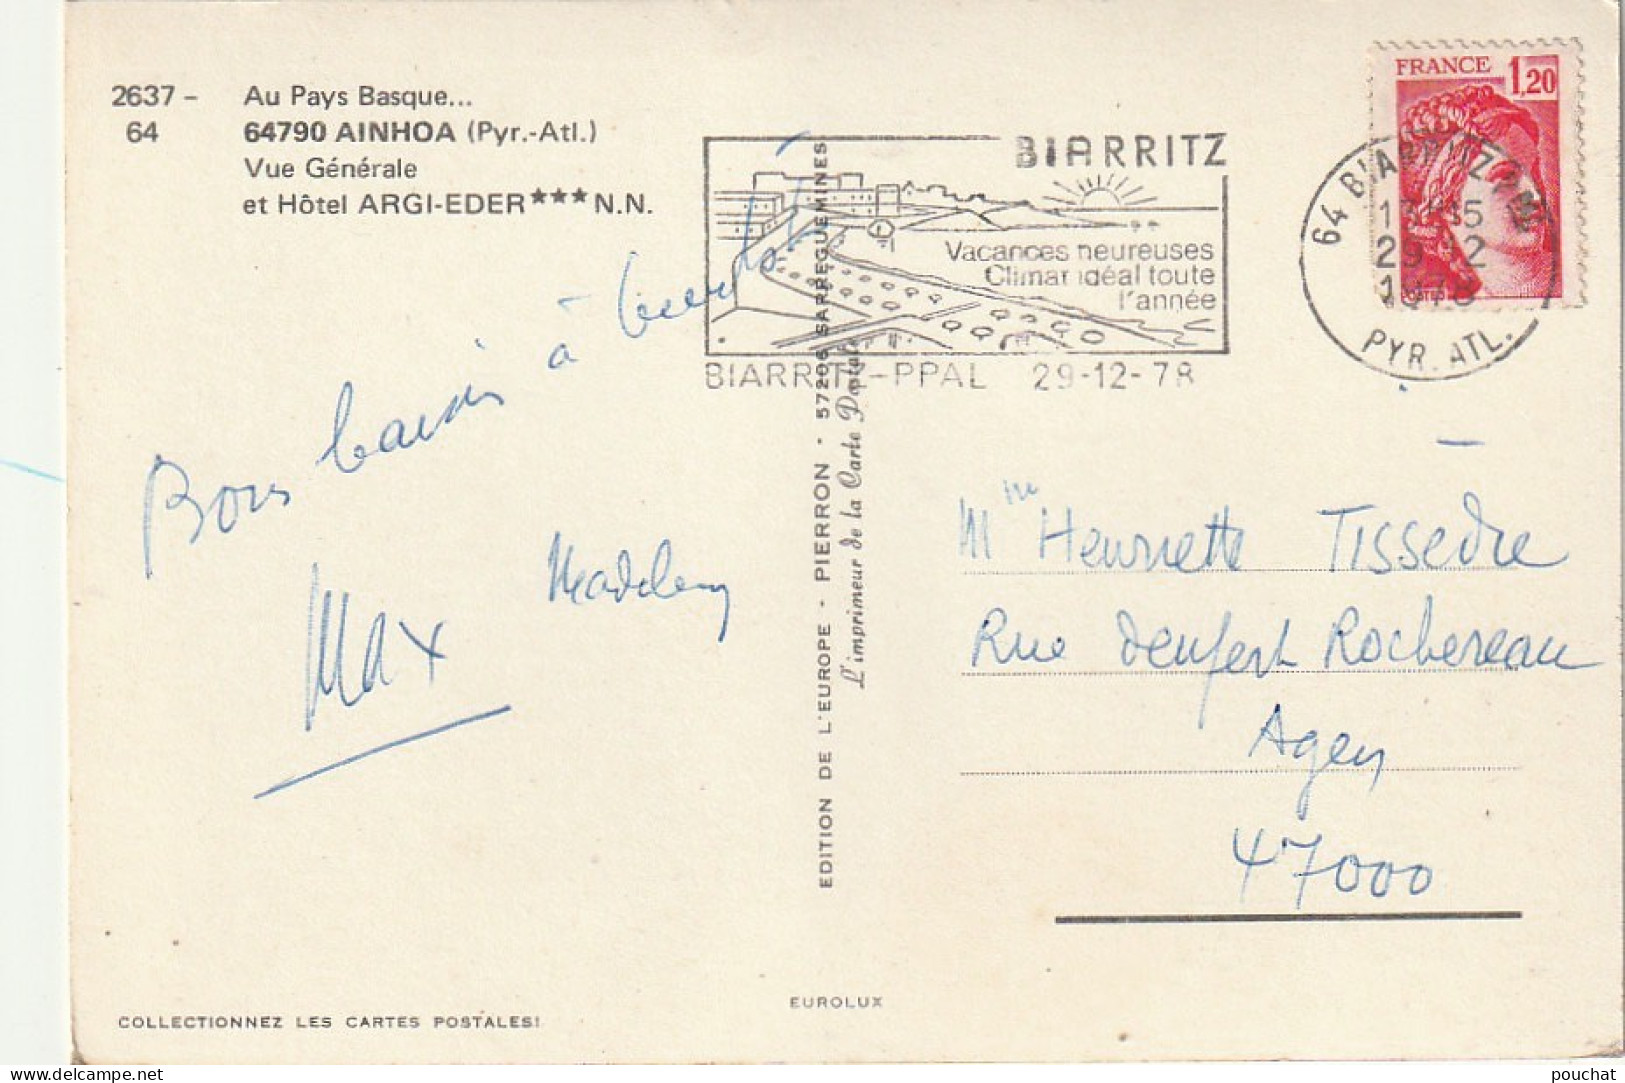 2637 - Au Pays Basque...
64 64790 AINHOA (Pyr.-Atl.)
Vue Générale
et Hôtel ARGI-EDER*** N.N.
FRANCE 1,20
POSTES
BIARRITZ
Vacances heureuses
Climat idéal toute
l'année
BIARRITZ-PPAL 29-12-78
64 BIARRITZ
29 12
1978
PYR. ATL.
Bons baisers à bientôt
Max
Madeleny
EDITION DE L'EUROPE - PIERRON - 57206 SARREGUEMINES
L'imprimeur de la Carte Postale
Mme Henriette Tissedre
Rue Denfert Rochereau
Agen
47000
EUROLUX
COLLECTIONNEZ LES CARTES POSTALES!
delcampe.net
pouchat